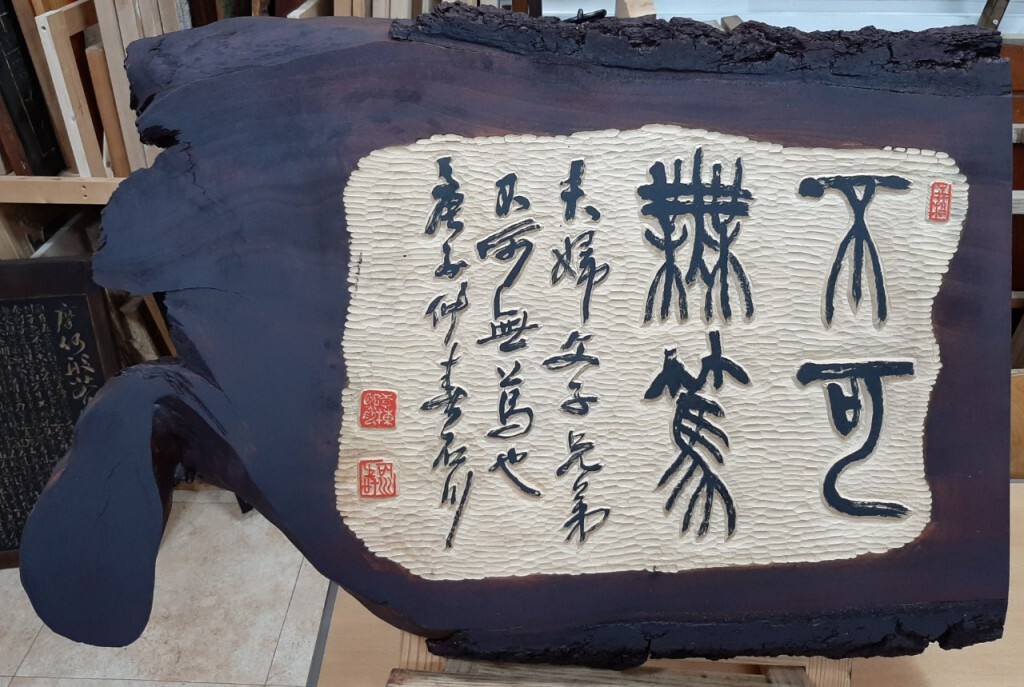 不可
無篤
夫婦父子兄弟
不可無篤也
庚子仲春石川